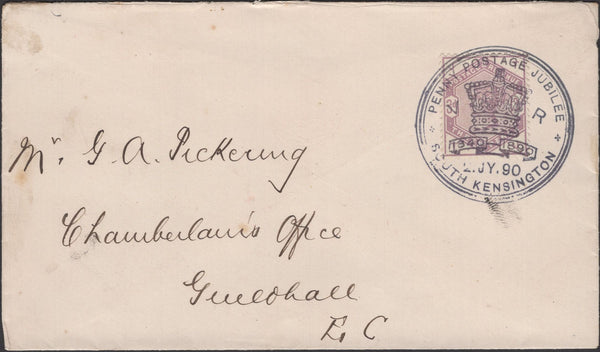 PENNY POSTAGE JUBILEE
R
1840 1890
2.JY.90
SOUTH KENSINGTON
Mr. G. A. Pickering
Chamberlain's Office
Guildhall
E. C